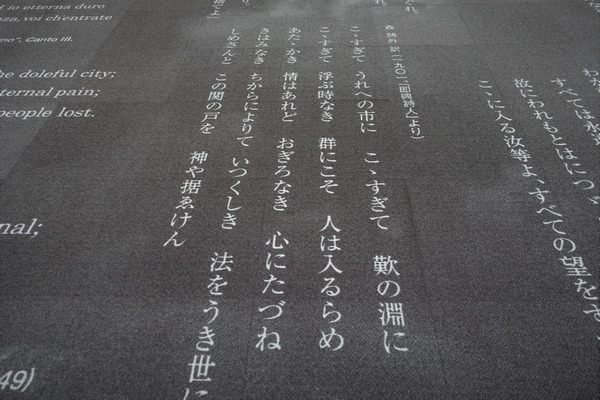 io etterna duro
voi chentrate
Canto III.
he doleful city;
ternal pain;
people lost.
nal;
49)
すべては永遠
故にわれもとはにつゞ
こゝに入る汝等よ、すべての望をす
森 鷗外 訳(一九〇二「即興詩人」より)
こゝすぎて うれへの市に こゝすぎて 歎の淵に
こゝすぎて 浮ぶ時なき 群にこそ 人は入るらめ
あたゝかき 情はあれど おぎろなき 心にたづね
きはみなき ちからによりて いつくしき 法をうき世に
しめさんと この関の戸を 神や据ゑけん